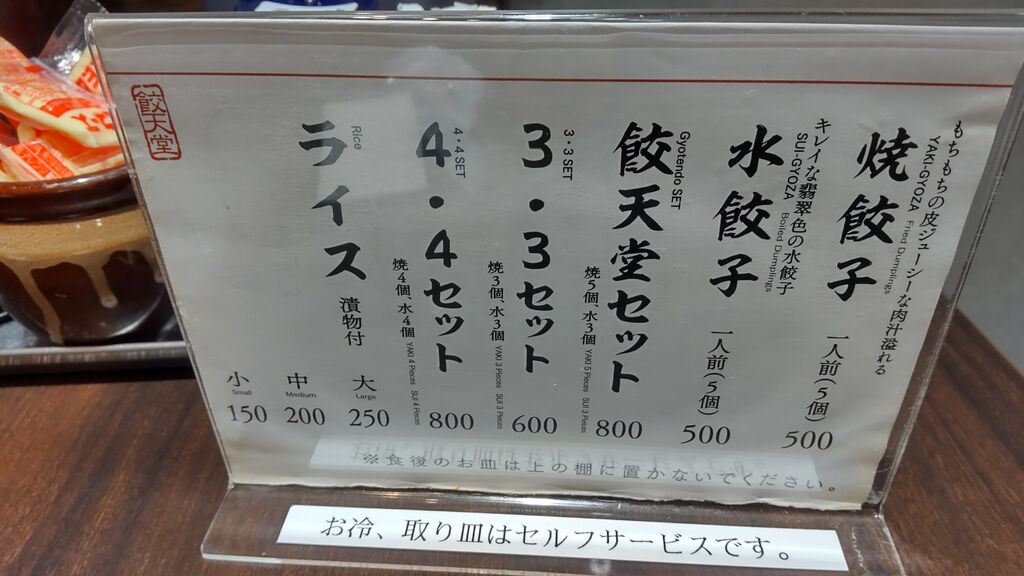 もちもちの皮ジューシーな肉汁溢れる
YAKI-GYOZA Fried Dumplings
焼餃子 一人前(5個) 500
キレイな翡翠色の水餃子
SUI-GYOZA Boiled Dumplings
水餃子 一人前(5個) 500
Gyotendo SET
餃天堂セット 800
焼5個、水3個 YAKI 5 Pieces SUI 3 Pieces
3・3 SET
3・3セット 600
焼3個、水3個 YAKI 3 Pieces SUI 3 Pieces
4・4 SET
4・4セット 800
焼4個、水4個 YAKI 4 Pieces SUI 4 Pieces
Rice
ライス 漬物付
大 Large 250
中 Medium 200
小 Small 150
餃天堂
※食後のお皿は上の棚に置かないでください。
お冷、取り皿はセルフサービスです。